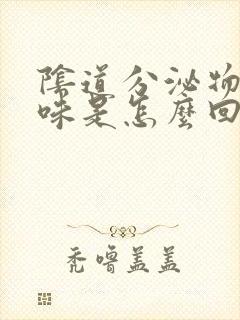 陰道分泌物
味是怎麼回
秃噜盖盖